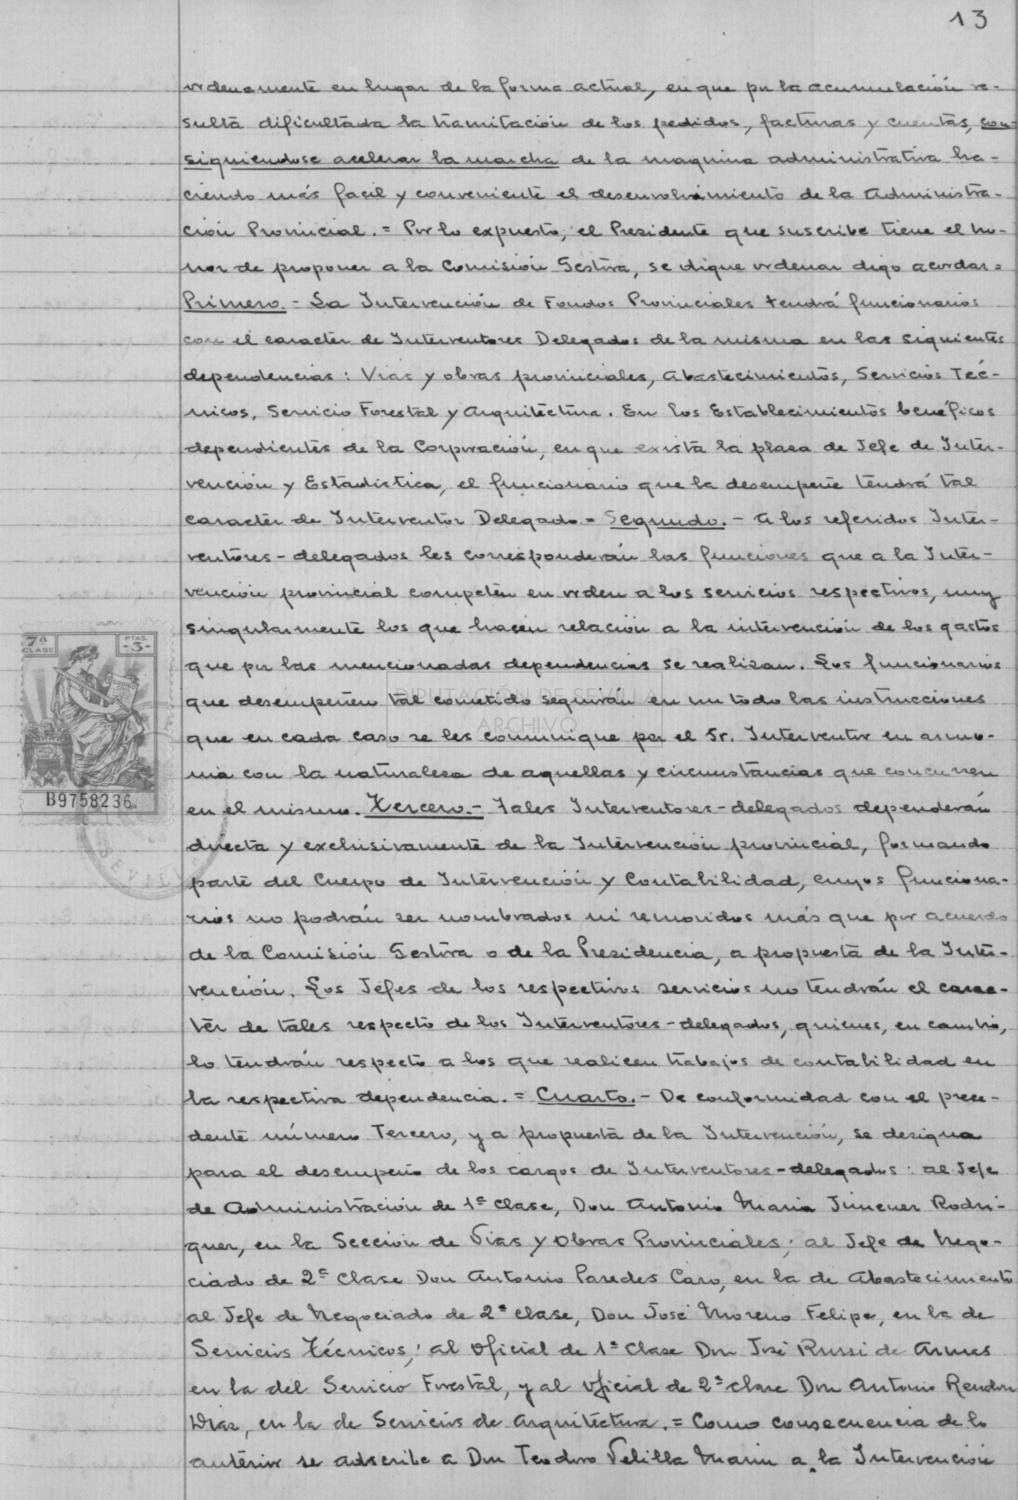 13
ordenamente en lugar de la forma actual, en que por la acumulación re-
sulta dificultada la tramitación de los pedidos, facturas y cuentas, con-
siguiendose acelerar la marcha de la maquina administrativa ha-
ciendo más facil y conveniente el desenvolvimiento de la Administra-
ción Provincial. = Por lo expuesto, el Presidente que suscribe tiene el ho-
nor de proponer a la Comisión Gestora, se digne ordenar digo acordar =
Primero. - La Intervención de Fondos Provinciales tendrá funcionarios
con el caracter de Interventores Delegados de la misma en las siguientes
dependencias: Vias y obras provinciales, Abastecimientos, Servicios Téc-
nicos, Servicio Forestal y Arquitectura. En los Establecimientos benéficos
dependientes de la Corporación, en que exista la plaza de Jefe de Inter-
vención y Estadistica, el funcionario que la desempeñe tendrá tal
caracter de Interventor Delegado = Segundo. - A los referidos Inter-
ventores-delegados les corresponderán las funciones que a la Inter-
vención provincial competen en orden a los servicios respectivos, muy
singularmente los que hacen relación a la intervención de los gastos
que por las mencionadas dependencias se realizan. Los funcionarios
que desempeñen tal cometido seguirán en un todo las instrucciones
que en cada caso se les comunique por el Sr. Interventor en armo-
nia con la naturaleza de aquellas y circunstancias que concurren
en el mismo. Tercero. - Tales Interventores-delegados dependerán
directa y exclusivamente de la Intervención provincial, formando
parte del Cuerpo de Intervención y Contabilidad, cuyos funciona-
rios no podrán ser nombrados ni removidos más que por acuerdo
de la Comisión Gestora o de la Presidencia, a propuesta de la Inter-
vención. Los Jefes de los respectivos servicios no tendrán el carac-
ter de tales respecto de los Interventores-delegados, quienes, en cambio,
lo tendrán respecto a los que realicen trabajos de contabilidad en
la respectiva dependencia. = Cuarto. - De conformidad con el prece-
dente número Tercero, y a propuesta de la Intervención, se designa
para el desempeño de los cargos de Interventores-delegados: al Jefe
de Administración de 1ª Clase, Don Antonio Maria Jimenez Rodri-
guez, en la Sección de Vias y Obras Provinciales; al Jefe de Nego-
ciado de 2ª Clase Don Antonio Paredes Caro, en la de Abastecimiento
al Jefe de Negociado de 2ª Clase, Don José Moreno Felipe, en la de
Servicios Técnicos; al Oficial de 1ª Clase Don José Russi de Armas
en la del Servicio Forestal, y al Oficial de 2ª clase Don Antonio Rendon
Diaz, en la de Servicios de Arquitectura. = Como consecuencia de lo
anterior se adscribe a Don Teodoro Velilla Marin a la Intervención
7ª CLASE
PTAS. -3-
B9758236
DIPUTACIÓN DE SEVILLA
ARCHIVO